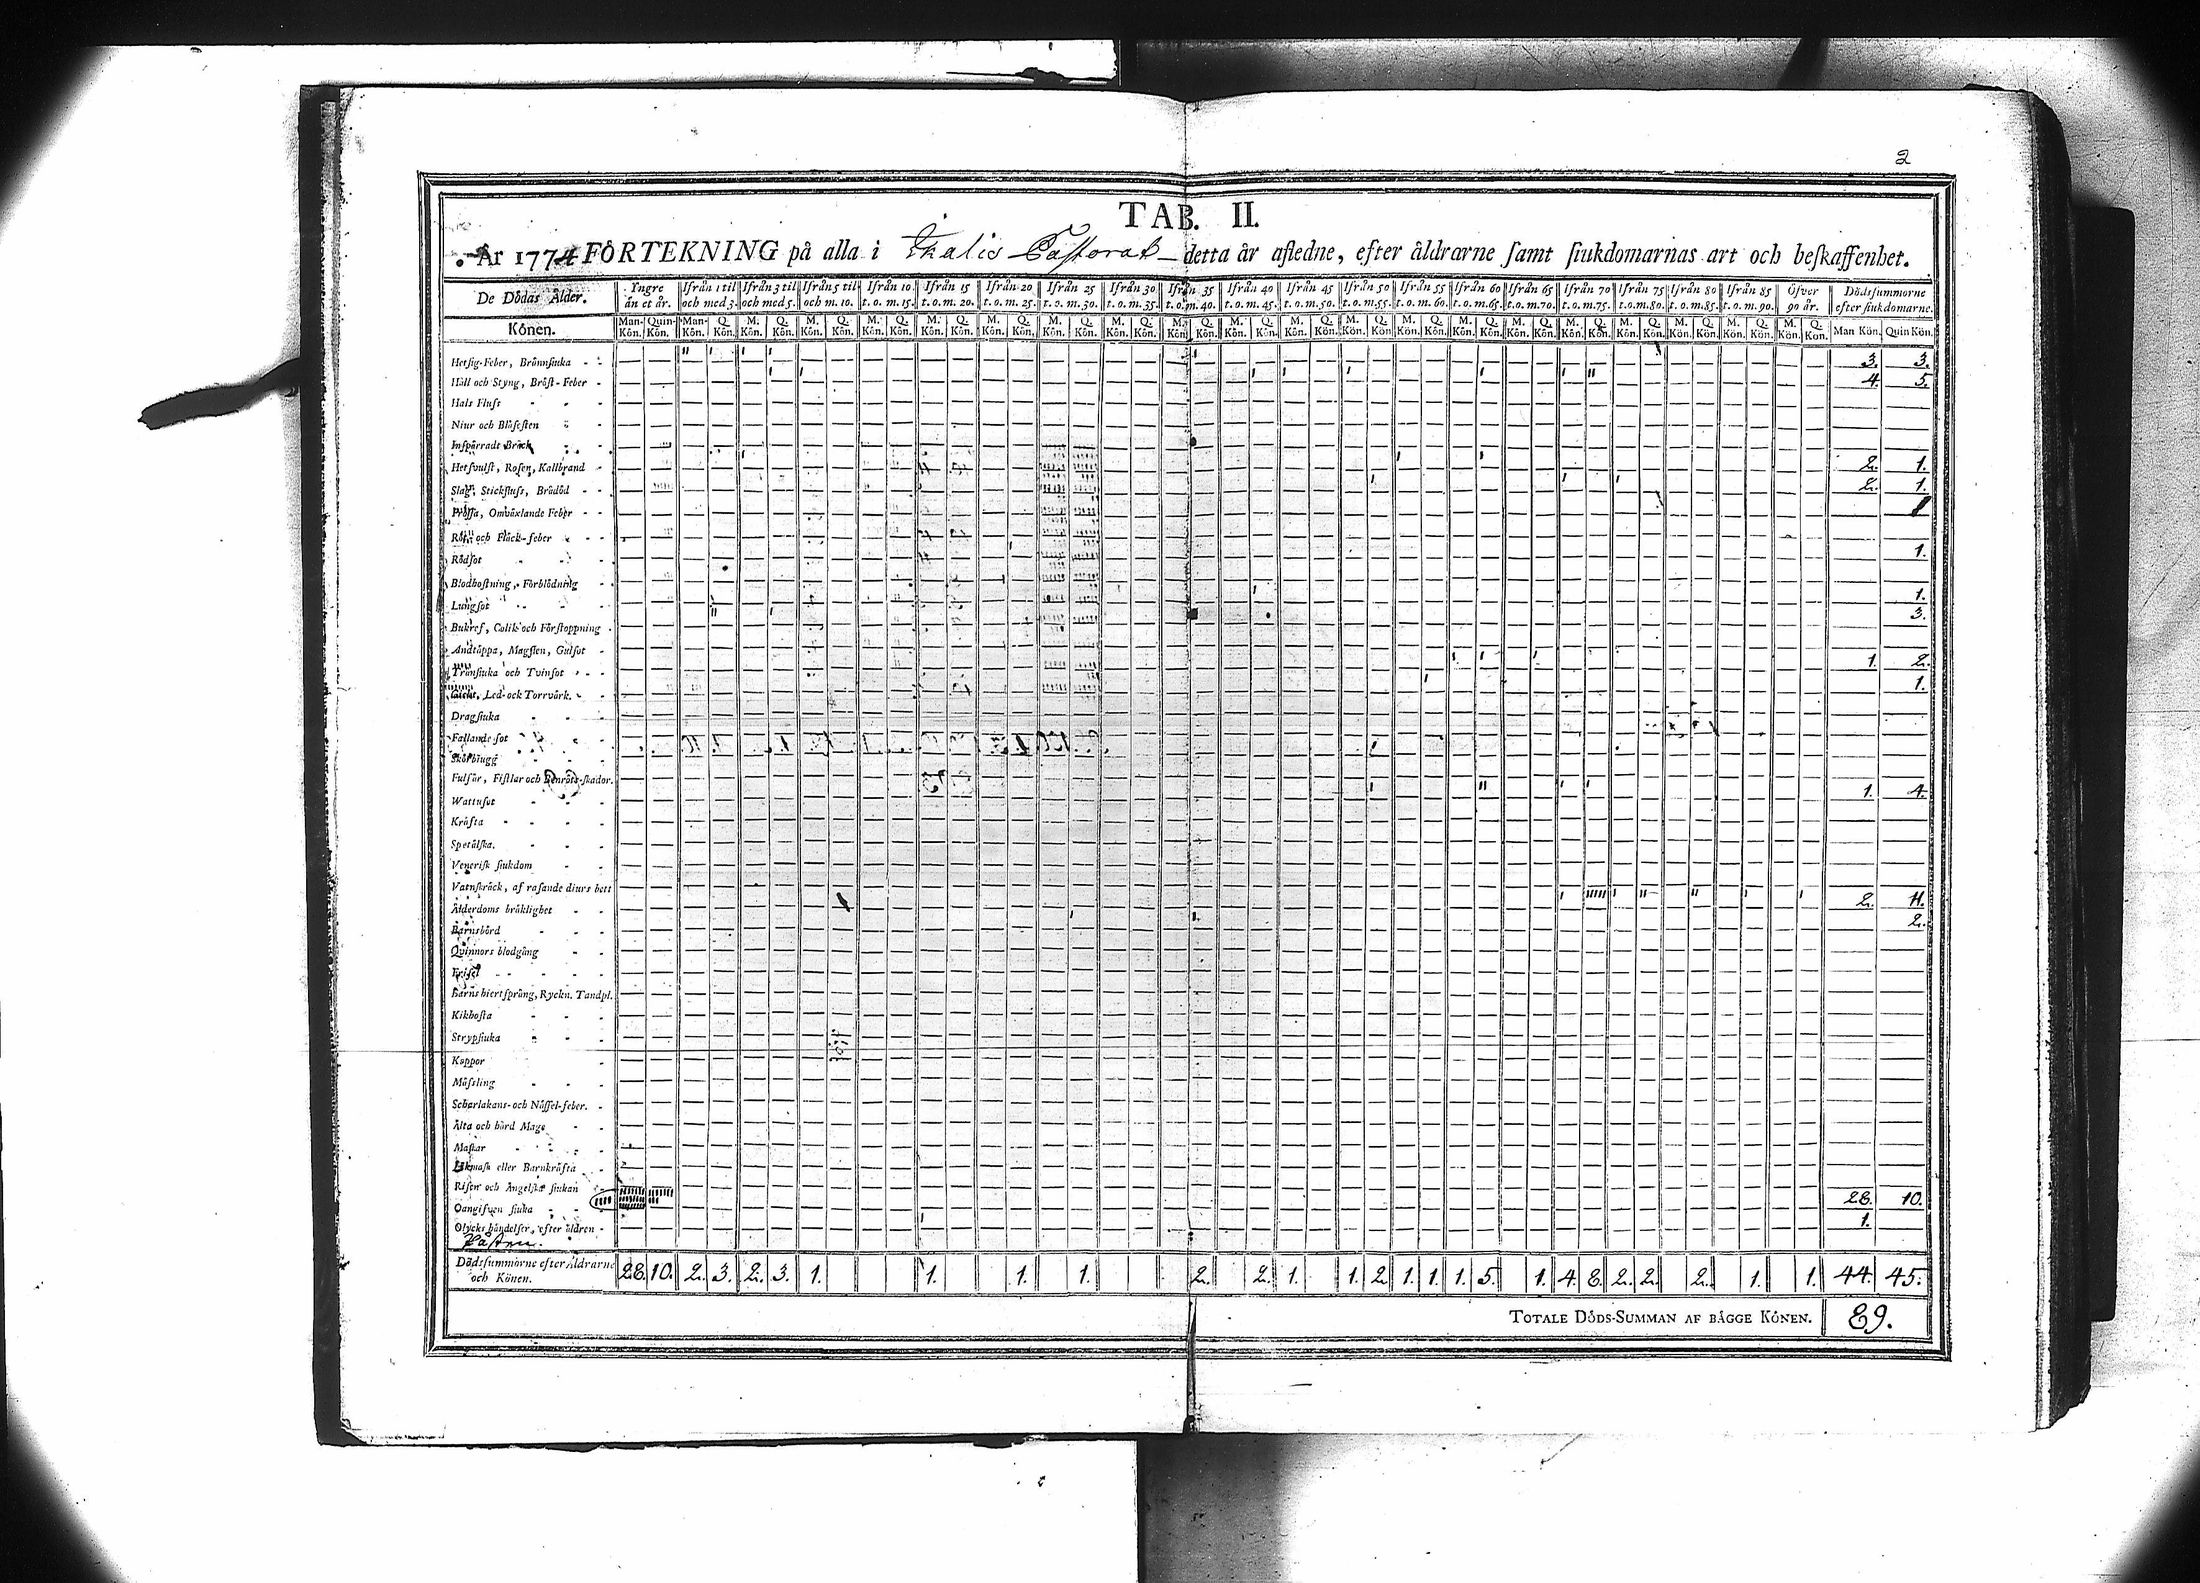 2
TAB. II.
År 1774 FÖRTEKNING på alla i Ikalis Pastorat detta år afledne, efter åldrarne samt siukdomarnas art och beskaffenhet.
De Dödas Ålder. Yngre än et år. Ifrån 1 til och med 3. Ifrån 3 til och med 5. Ifrån 5 til och m. 10. Ifrån 10 t. o. m. 15. Ifrån 15 t. o. m. 20. Ifrån 20 t. o. m. 25. Ifrån 25 t. o. m. 30. Ifrån 30 t. o. m. 35. Ifrån 35 t. o. m. 40. Ifrån 40 t. o. m. 45. Ifrån 45 t. o. m. 50. Ifrån 50 t. o. m. 55. Ifrån 55 t. o. m. 60. Ifrån 60 t. o. m. 65. Ifrån 65 t. o. m. 70. Ifrån 70 t. o. m. 75. Ifrån 75 t. o. m. 80. Ifrån 80 t. o. m. 85. Ifrån 85 t. o. m. 90. Öfver 90 år. Dödssummorne efter siukdomarne.
Könen. Man-Kön. Quin-Kön. Man-Kön. Q. Kön. M. Kön. Q. Kön. M. Kön. Q. Kön. M. Kön. Q. Kön. M. Kön. Q. Kön. M. Kön. Q. Kön. M. Kön. Q. Kön. M. Kön. Q. Kön. M. Kön. Q. Kön. M. Kön. Q. Kön. M. Kön. Q. Kön. M. Kön. Q. Kön. M. Kön. Q. Kön. M. Kön. Q. Kön. M. Kön. Q. Kön. M. Kön. Q. Kön. M. Kön. Q. Kön. M. Kön. Q. Kön. M. Kön. Q. Kön. M. Kön. Q. Kön. Man Kön. Quin Kön.
Hetsig-Feber, Brännsiuka 3. 3.
Håll och Styng, Bröst-Feber 4. 5.
Hals Fluss
Niur och Blåsesten
Inspärradt Bråck
Hetsvulst, Rosen, Kallbrand 2. 1.
Slag, Stickfluss, Brådöd 2. 1.
Frossa, Omväxlande Feber
Röt- och Fläck-feber
Rödsot 1.
Blodhostning, Förblödning
Lungsot 1.
Bukref, Colik och Förstoppning 3.
Andtäppa, Magsten, Gulsot
Trånsiuka och Tvinsot 1. 2.
Gickt, Led- ock Torrvärk. 1.
Dragsiuka
Fallande sot
Skörbiugg
Fulsår, Fistlar och Benröts-skador.
Wattusot 1. 4.
Kräfta
Spetälska.
Venerisk siukdom
Vatnskräck, af rasande diurs bett
Ålderdoms bräklighet 2. 11.
Barnsbörd 2.
Qvinnors blodgång
Frisel
Barns hiertsprång, Ryckn. Tandpl.
Kikhosta
Strypsiuka
Koppor
Mässling
Scharlakans- och Nässel-feber.
Älta och hård Mage
Maskar
Ekmask eller Barnkräfta
Risen och Ängelska siukan
Oangifven siuka 28. 10.
Olycks händelser, efter åldren 1.
Dödssummorne efter Åldrarne och Könen. 28. 10. 2. 3. 2. 3. 1. 1. 1. 1. 2. 2. 1. 1. 2. 1. 1. 1. 5. 1. 4. 8. 2. 2. 2. 1. 1. 44. 45.
TOTALE DÖDS-SUMMAN AF BÄGGE KÖNEN. 89.